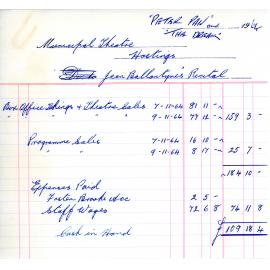 "PETER PAN" and 196
"THE DREAM"
Municipal Theatre
Hastings
Jean Ballantyne's Recital
Box Office Takings & Theatre Sales 7-11-64 81 11 -
" " " " " 9-11-64 77 12 - 159 3 -
Programme Sales 7-11-64 16 10 -
" " 9-11-64 8 17 - 25 7 -
184 10 -
Expenses Paid
Foster Brooke Acc 2 5 -
Staff Wages 72 6 8 74 11 8
Cash in Hand £ 109 18 4